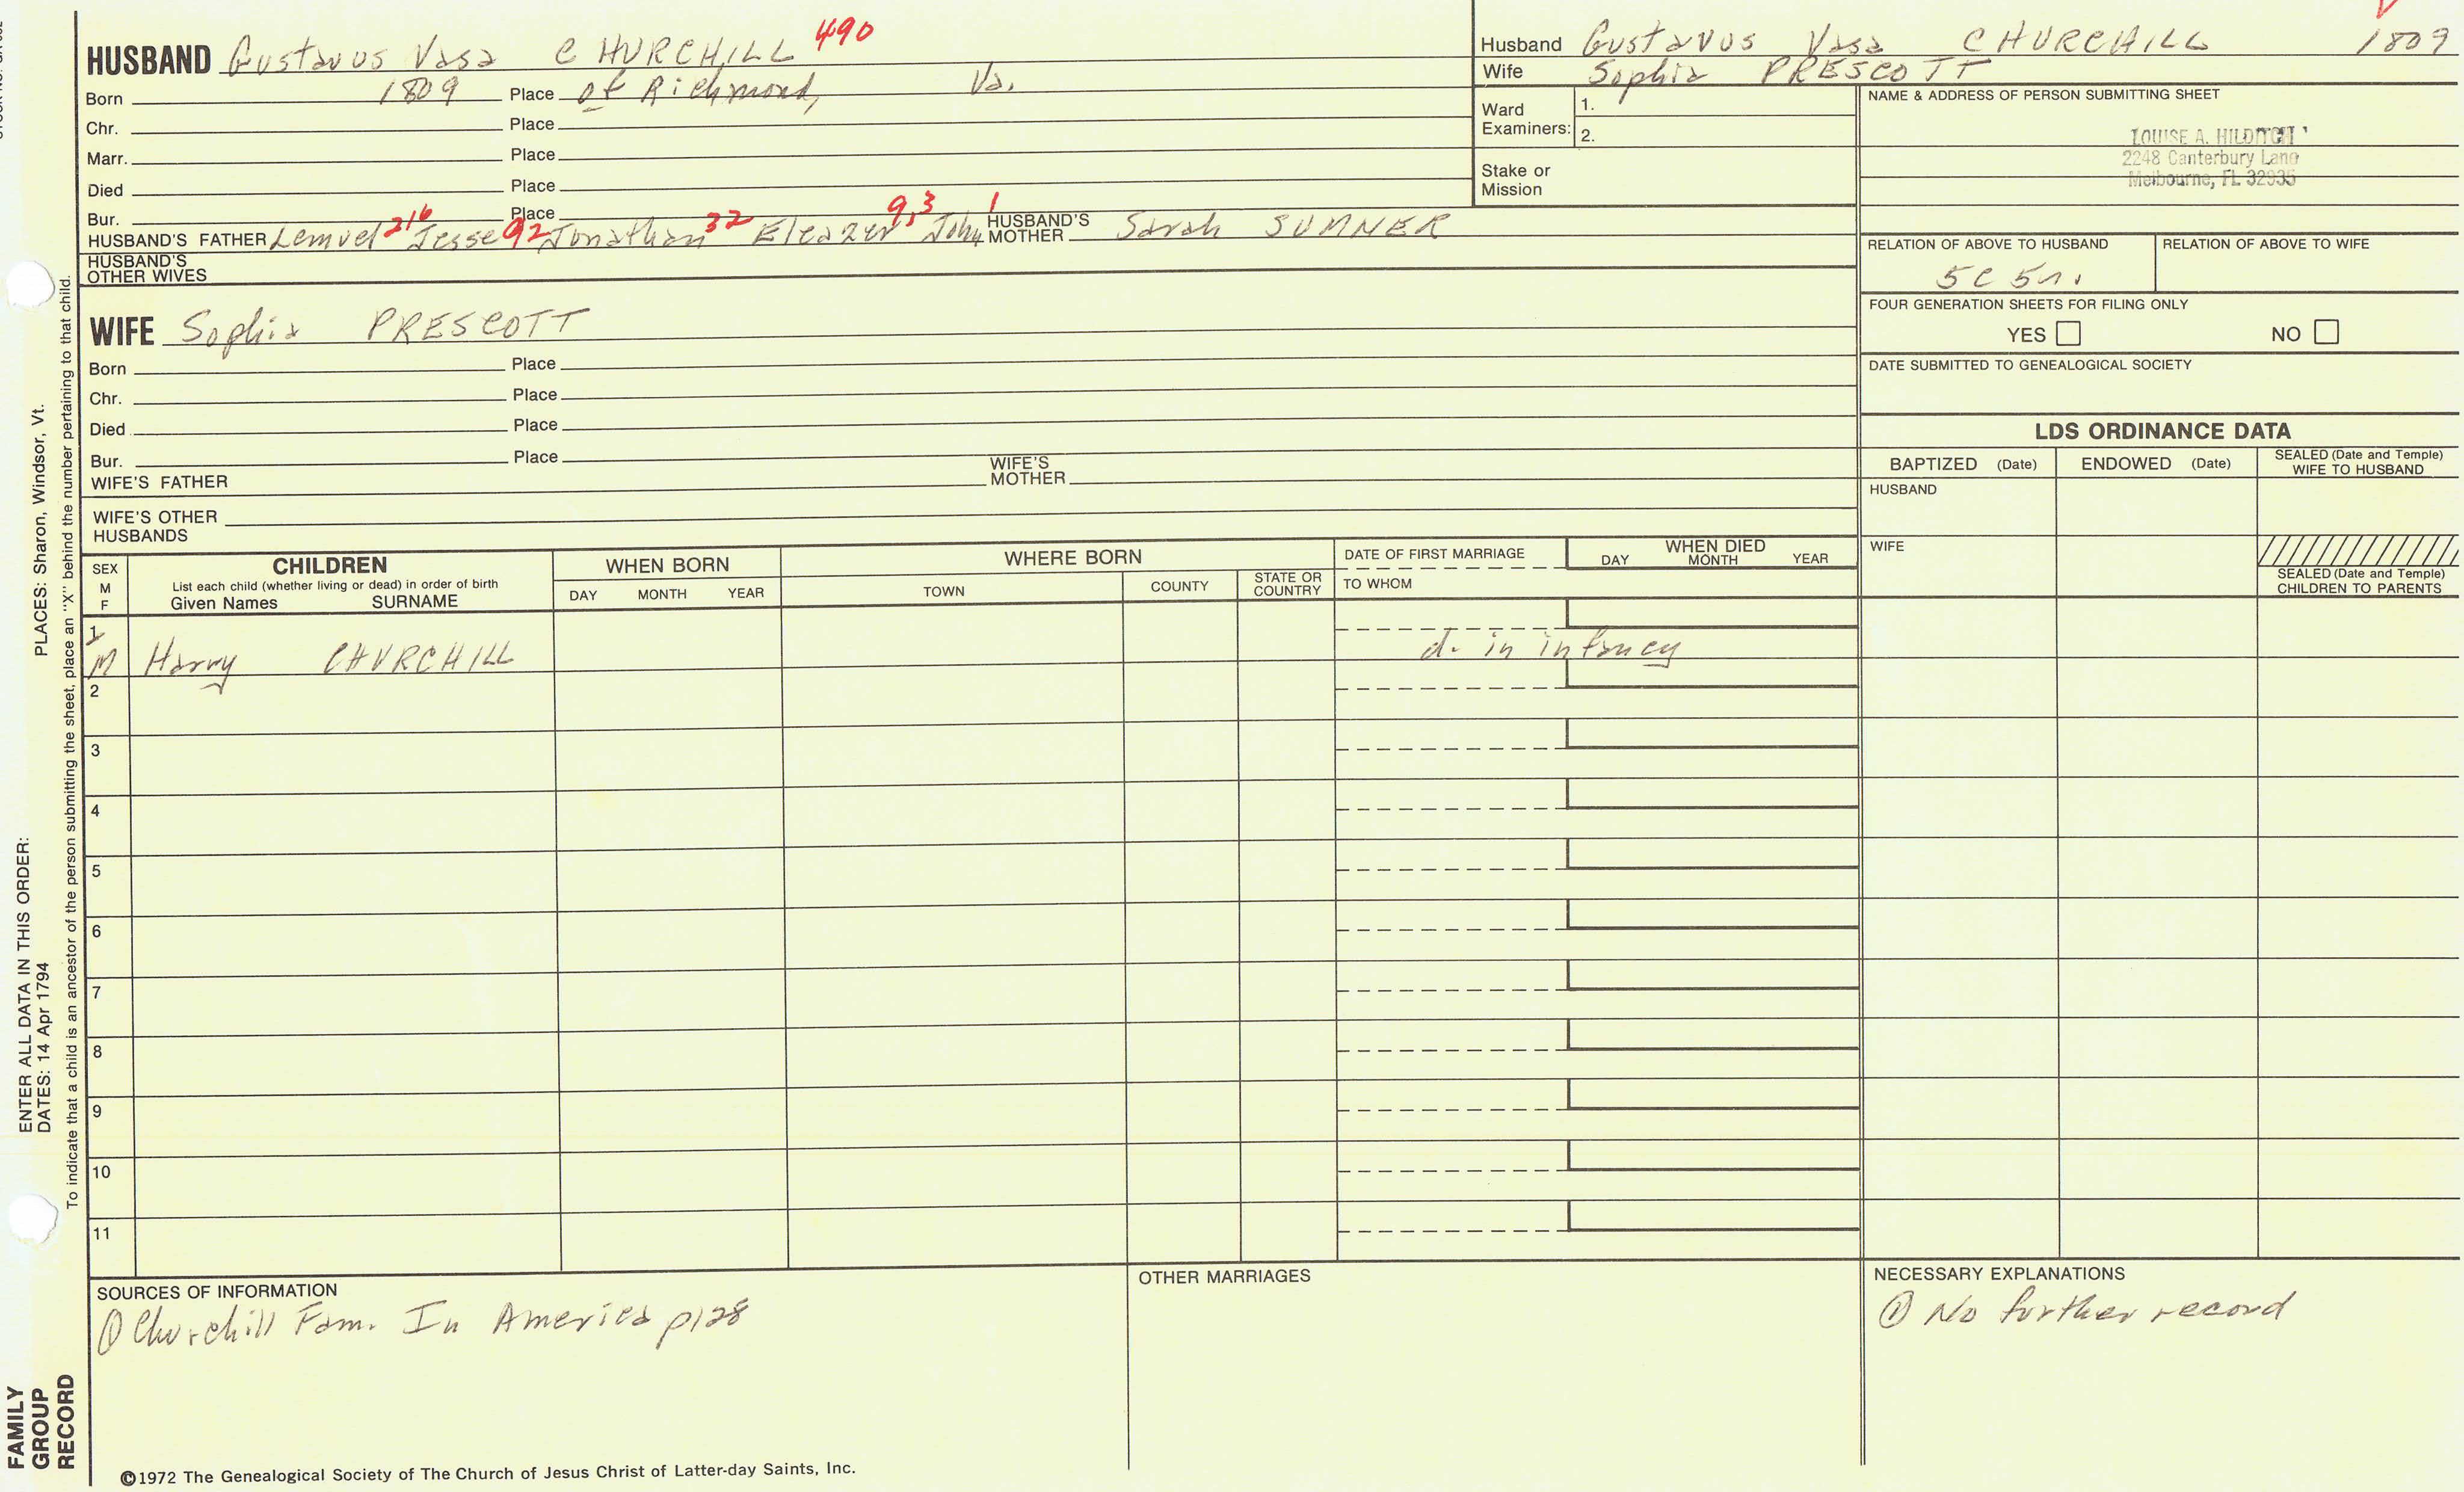 HUSBAND Gustavus Vasa CHURCHILL 490
Born 1809 Place of Richmond, Va.
Chr. Place
Marr. Place
Died Place
Bur. Place
HUSBAND'S FATHER Lemuel 216 Jesse 92 Jonathan 32 Eleazer 9,3 John 1 HUSBAND'S MOTHER Sarah SUMNER
HUSBAND'S OTHER WIVES
WIFE Sophia PRESCOTT
Born Place
Chr. Place
Died Place
Bur. Place
WIFE'S FATHER WIFE'S MOTHER
WIFE'S OTHER HUSBANDS
Husband Gustavus Vasa CHURCHILL 1809
Wife Sophia PRESCOTT
Ward Examiners: 1.
2.
Stake or Mission
NAME & ADDRESS OF PERSON SUBMITTING SHEET
LOUISE A. HILDITCH
2248 Canterbury Lane
Melbourne, FL 32935
RELATION OF ABOVE TO HUSBAND RELATION OF ABOVE TO WIFE
5C 5r.
FOUR GENERATION SHEETS FOR FILING ONLY
YES NO
DATE SUBMITTED TO GENEALOGICAL SOCIETY
LDS ORDINANCE DATA
BAPTIZED (Date) ENDOWED (Date) SEALED (Date and Temple) WIFE TO HUSBAND
HUSBAND
WIFE
SEALED (Date and Temple) CHILDREN TO PARENTS
SEX M F
CHILDREN
List each child (whether living or dead) in order of birth
Given Names SURNAME
WHEN BORN
DAY MONTH YEAR
WHERE BORN
TOWN COUNTY STATE OR COUNTRY
DATE OF FIRST MARRIAGE
TO WHOM
WHEN DIED
DAY MONTH YEAR
1
M Harry CHURCHILL d. in infancy
2
3
4
5
6
7
8
9
10
11
SOURCES OF INFORMATION
① Churchill Fam. In America p128
OTHER MARRIAGES
NECESSARY EXPLANATIONS
① No further record
©1972 The Genealogical Society of The Church of Jesus Christ of Latter-day Saints, Inc.
FAMILY
GROUP
RECORD
ENTER ALL DATA IN THIS ORDER:
DATES: 14 Apr 1794 PLACES: Sharon, Windsor, Vt.
To indicate that a child is an ancestor of the person submitting the sheet, place an "X" behind the number pertaining to that child.